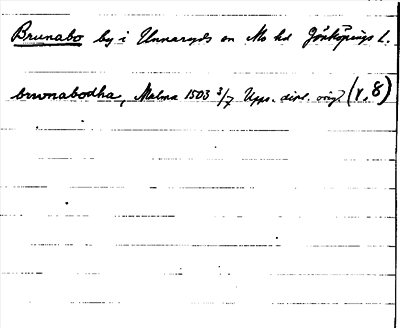 Brunabo by i Unnaryds sn Mo hd Jönköpings l.
brwnabodha, Malma 1503 3/7 Upps. dipl. orig. (V, 8)